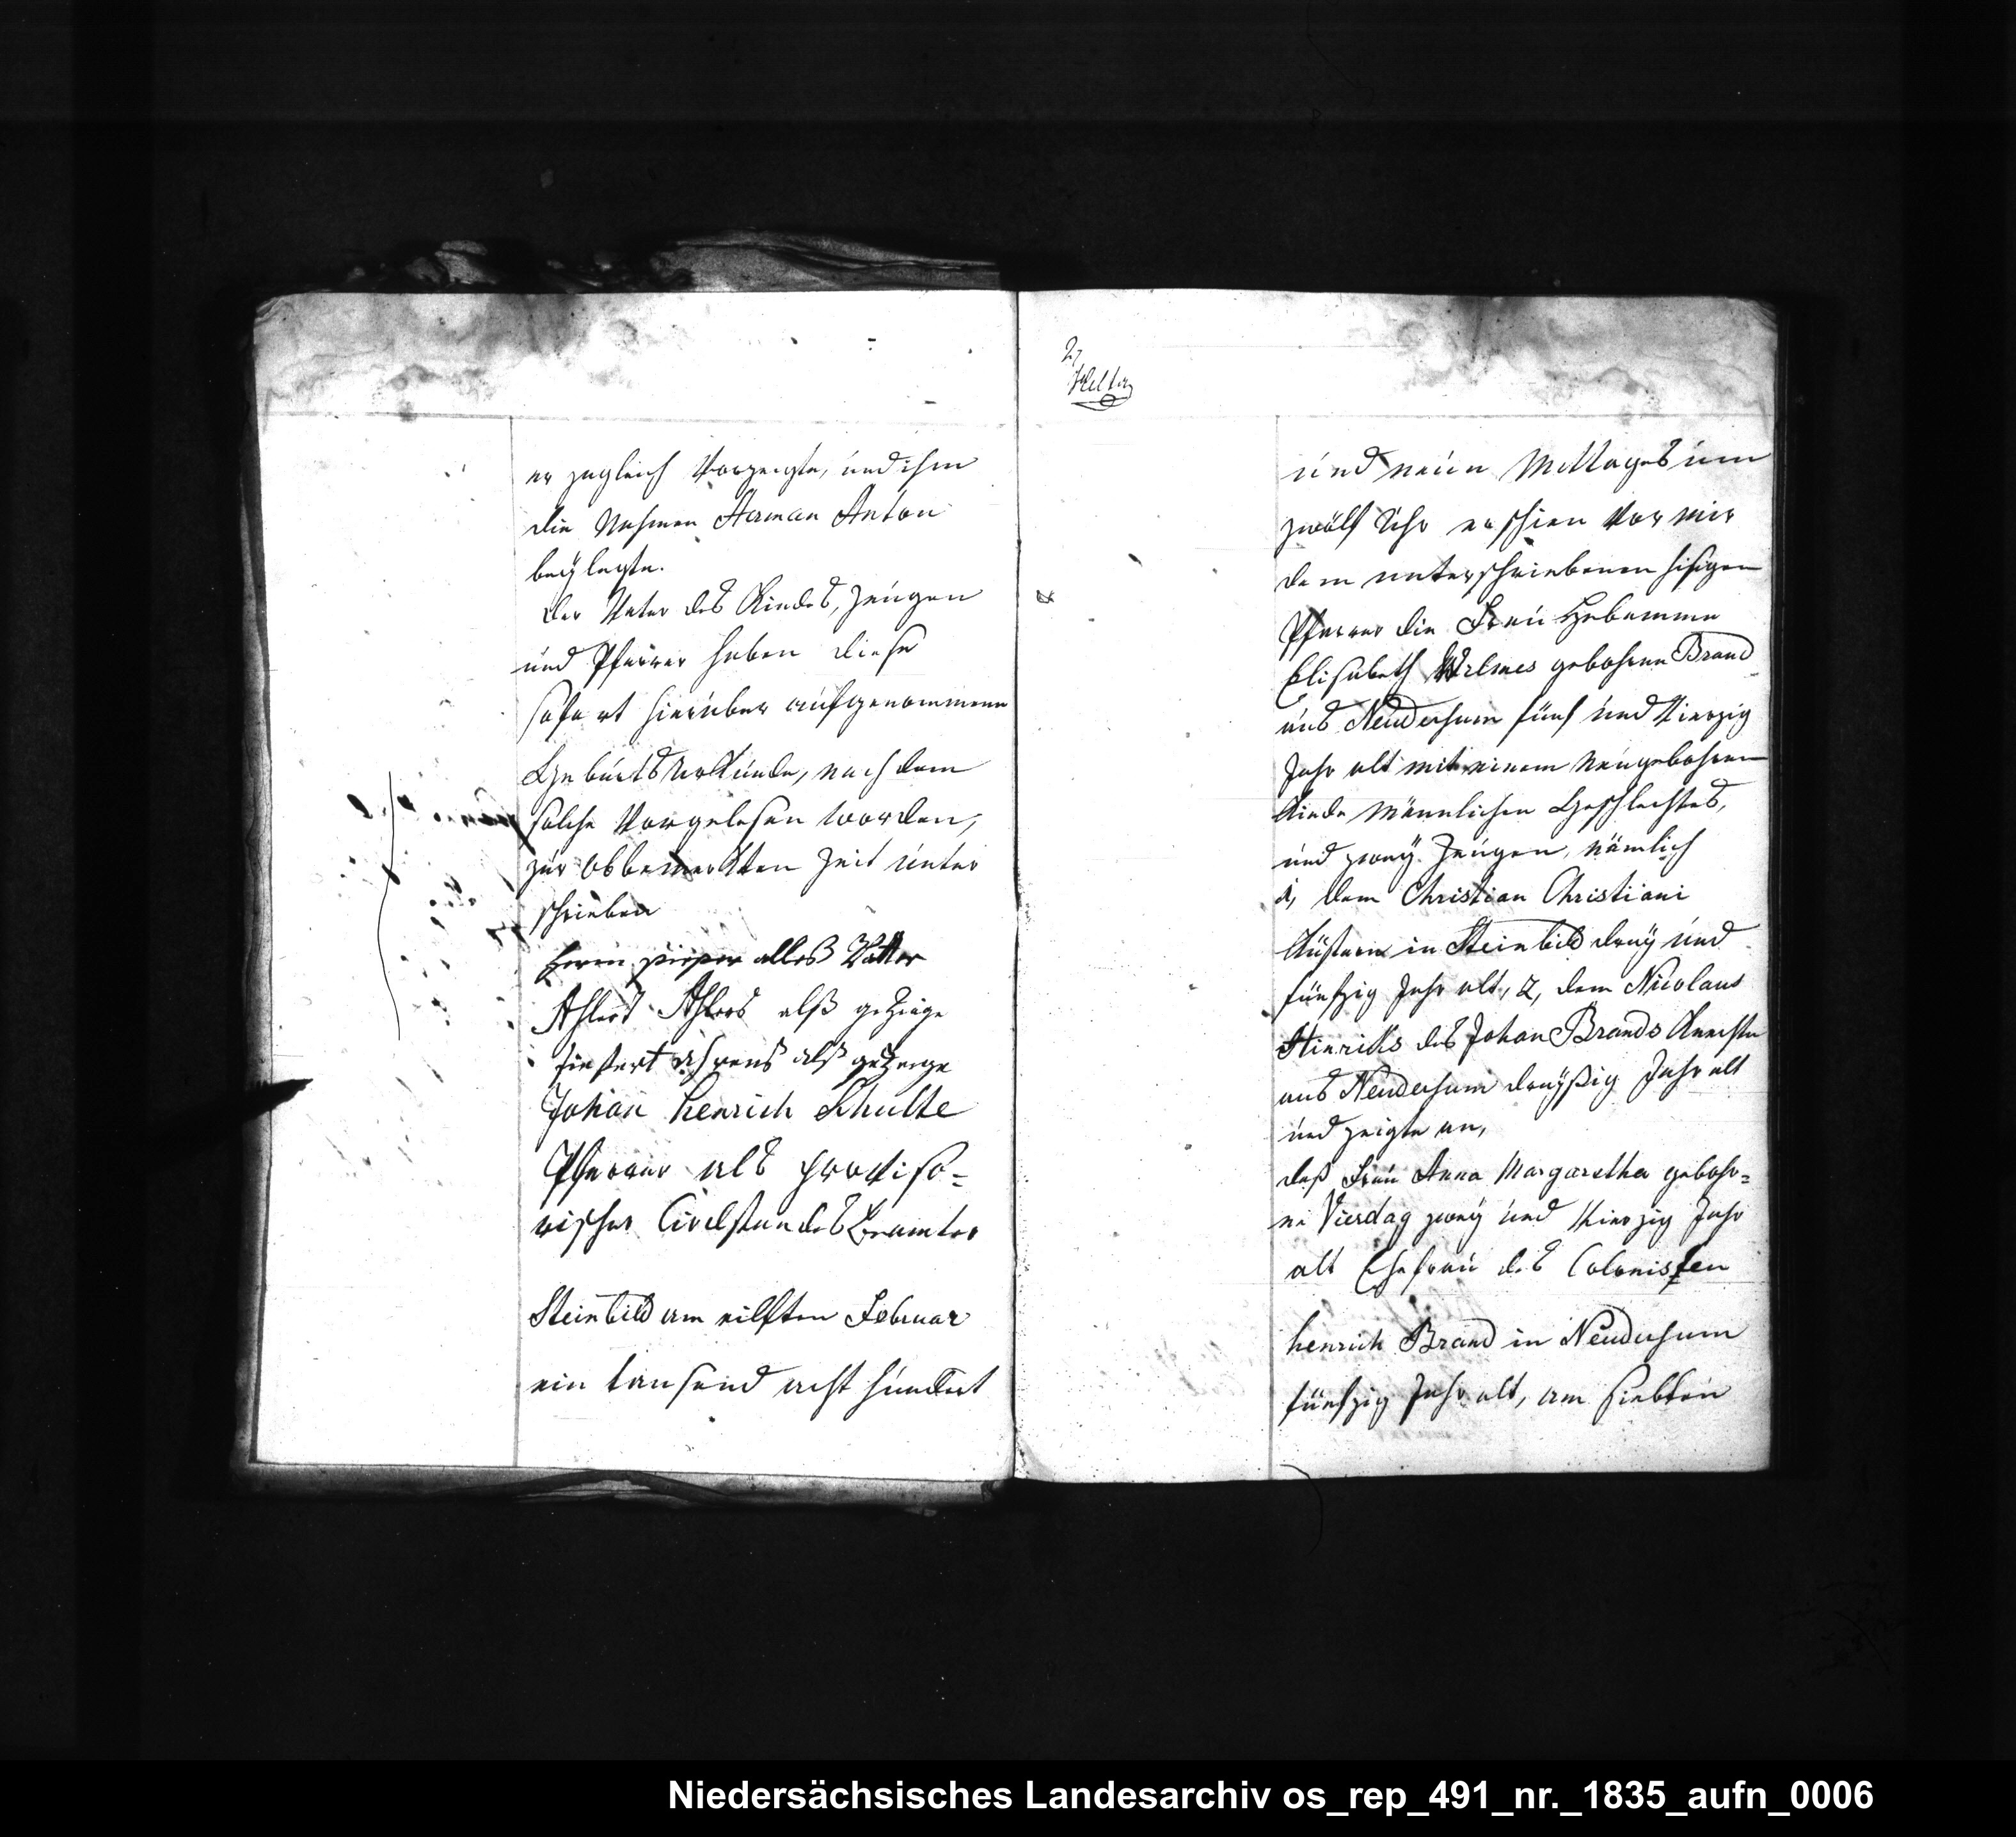 er zugleich Vorzeigte, und ihm
die Nahmen Herman Anton
beÿ legte.
Der Vater des Kindes, Zeugen
und Pfarrer haben diese
sofort hierüber aufgenommene
Geburts Urkunde, nach dem
solche Vorgelesen worden,
zur obbemerkten Zeit unter
schrieben
alleß Vatter
Ahlert Ahlers alß gezeige
ahrens alß gezeige
Johan Henrich Schulte
Pfarrer als proviso=
rischer Civilstandes Beamter
Steinbild am eilften Februar
ein tausend acht hundert
2,
und neun Mittages um
zwölf Uhr erschien Vor mir
dem unterschriebenen hisigen
Pfarrer die Frau Hebamme
Elisabeth Wilmes gebohrne Brand
aus Neudersum fünf und Vierzig
Jahr alt mit einem Neugebohrnen
Kinde Männlichen Geschlechtes,
und zweÿ Zeugen, nämlich
1, dem Christian Christiani
Küstern in Steinbild dreÿ und
fünfzig Jahr alt, 2, dem Nicolaus
Hinrichs des Johan Brands Knechte
aus Neudersum dreÿßig Jahr alt
und zeigte an,
daß Frau Anna Margaretha gebohr=
ne Vierdag zweÿ und Vierzig Jahr
alt Ehefrau des Colonisten
Henrich Brand in Neudersum
fünfzig Jahr alt, am siebten
Niedersächsisches Landesarchiv os_rep_491_nr._1835_aufn_0006